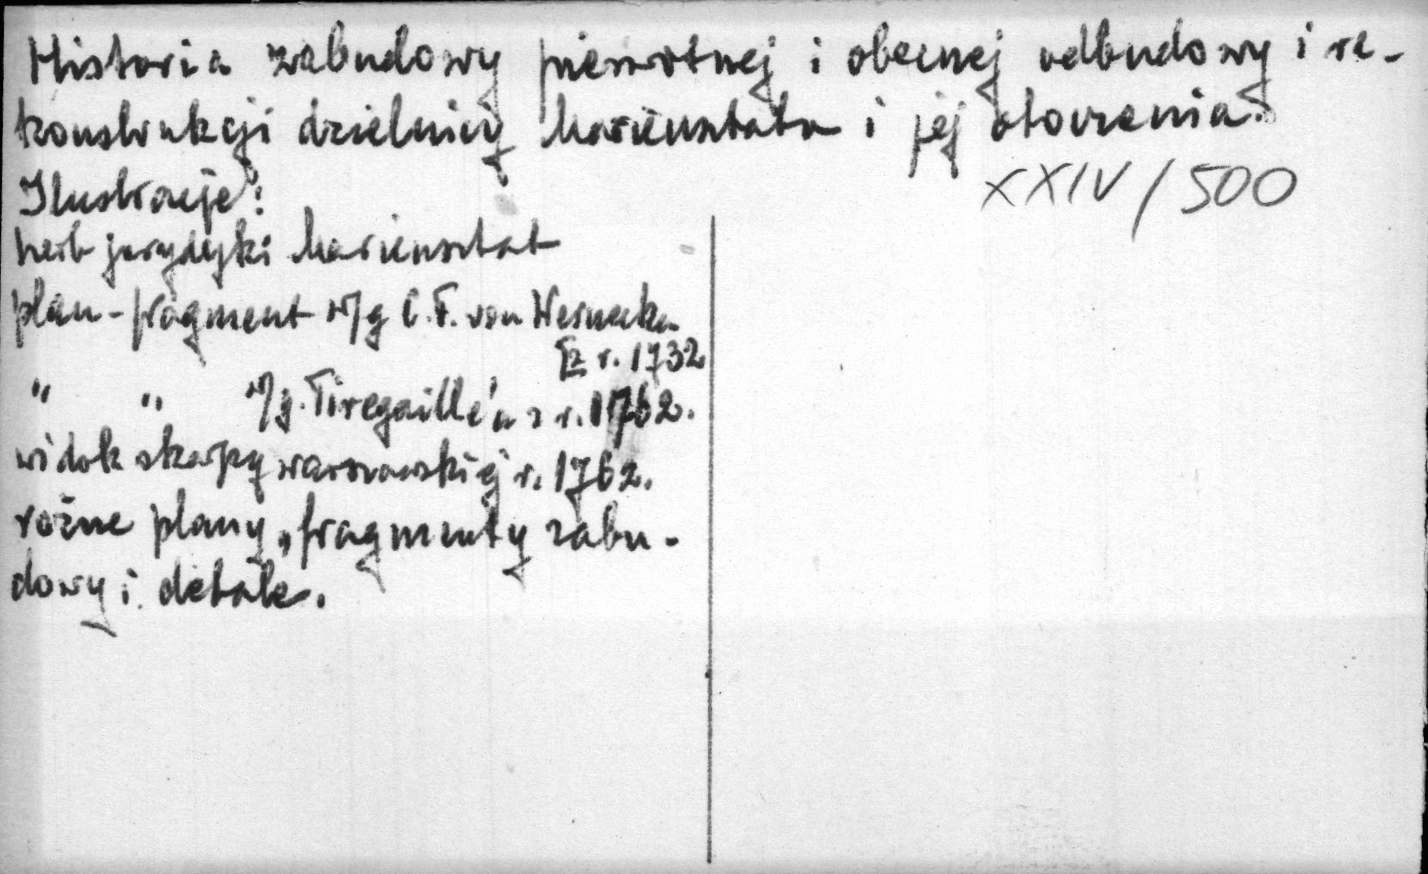 Historia zabudowy pierwotnej i obecnej odbudowy i re-
konstrukcji dzielnicy Mariensztatu i jej otoczenia.
XXIV/500
Ilustracje:
herb jurydyki Mariensztat
plan - fragment w/g C.F. von Wernecka
z r. 1732
" " w/g. Tiregaille'a z r. 1762.
widok skarpy warszawskiej r. 1762.
rożne plany, fragmenty zabu-
dowy i detale.